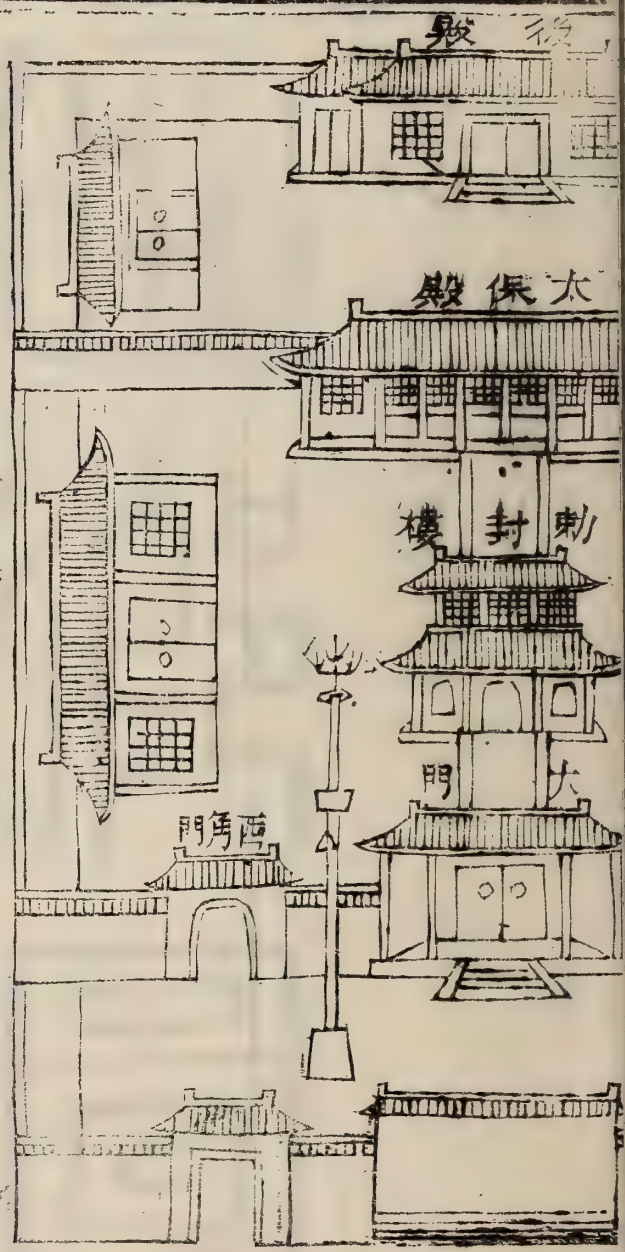 後殿
太保殿
勅封樓
大門
西角門